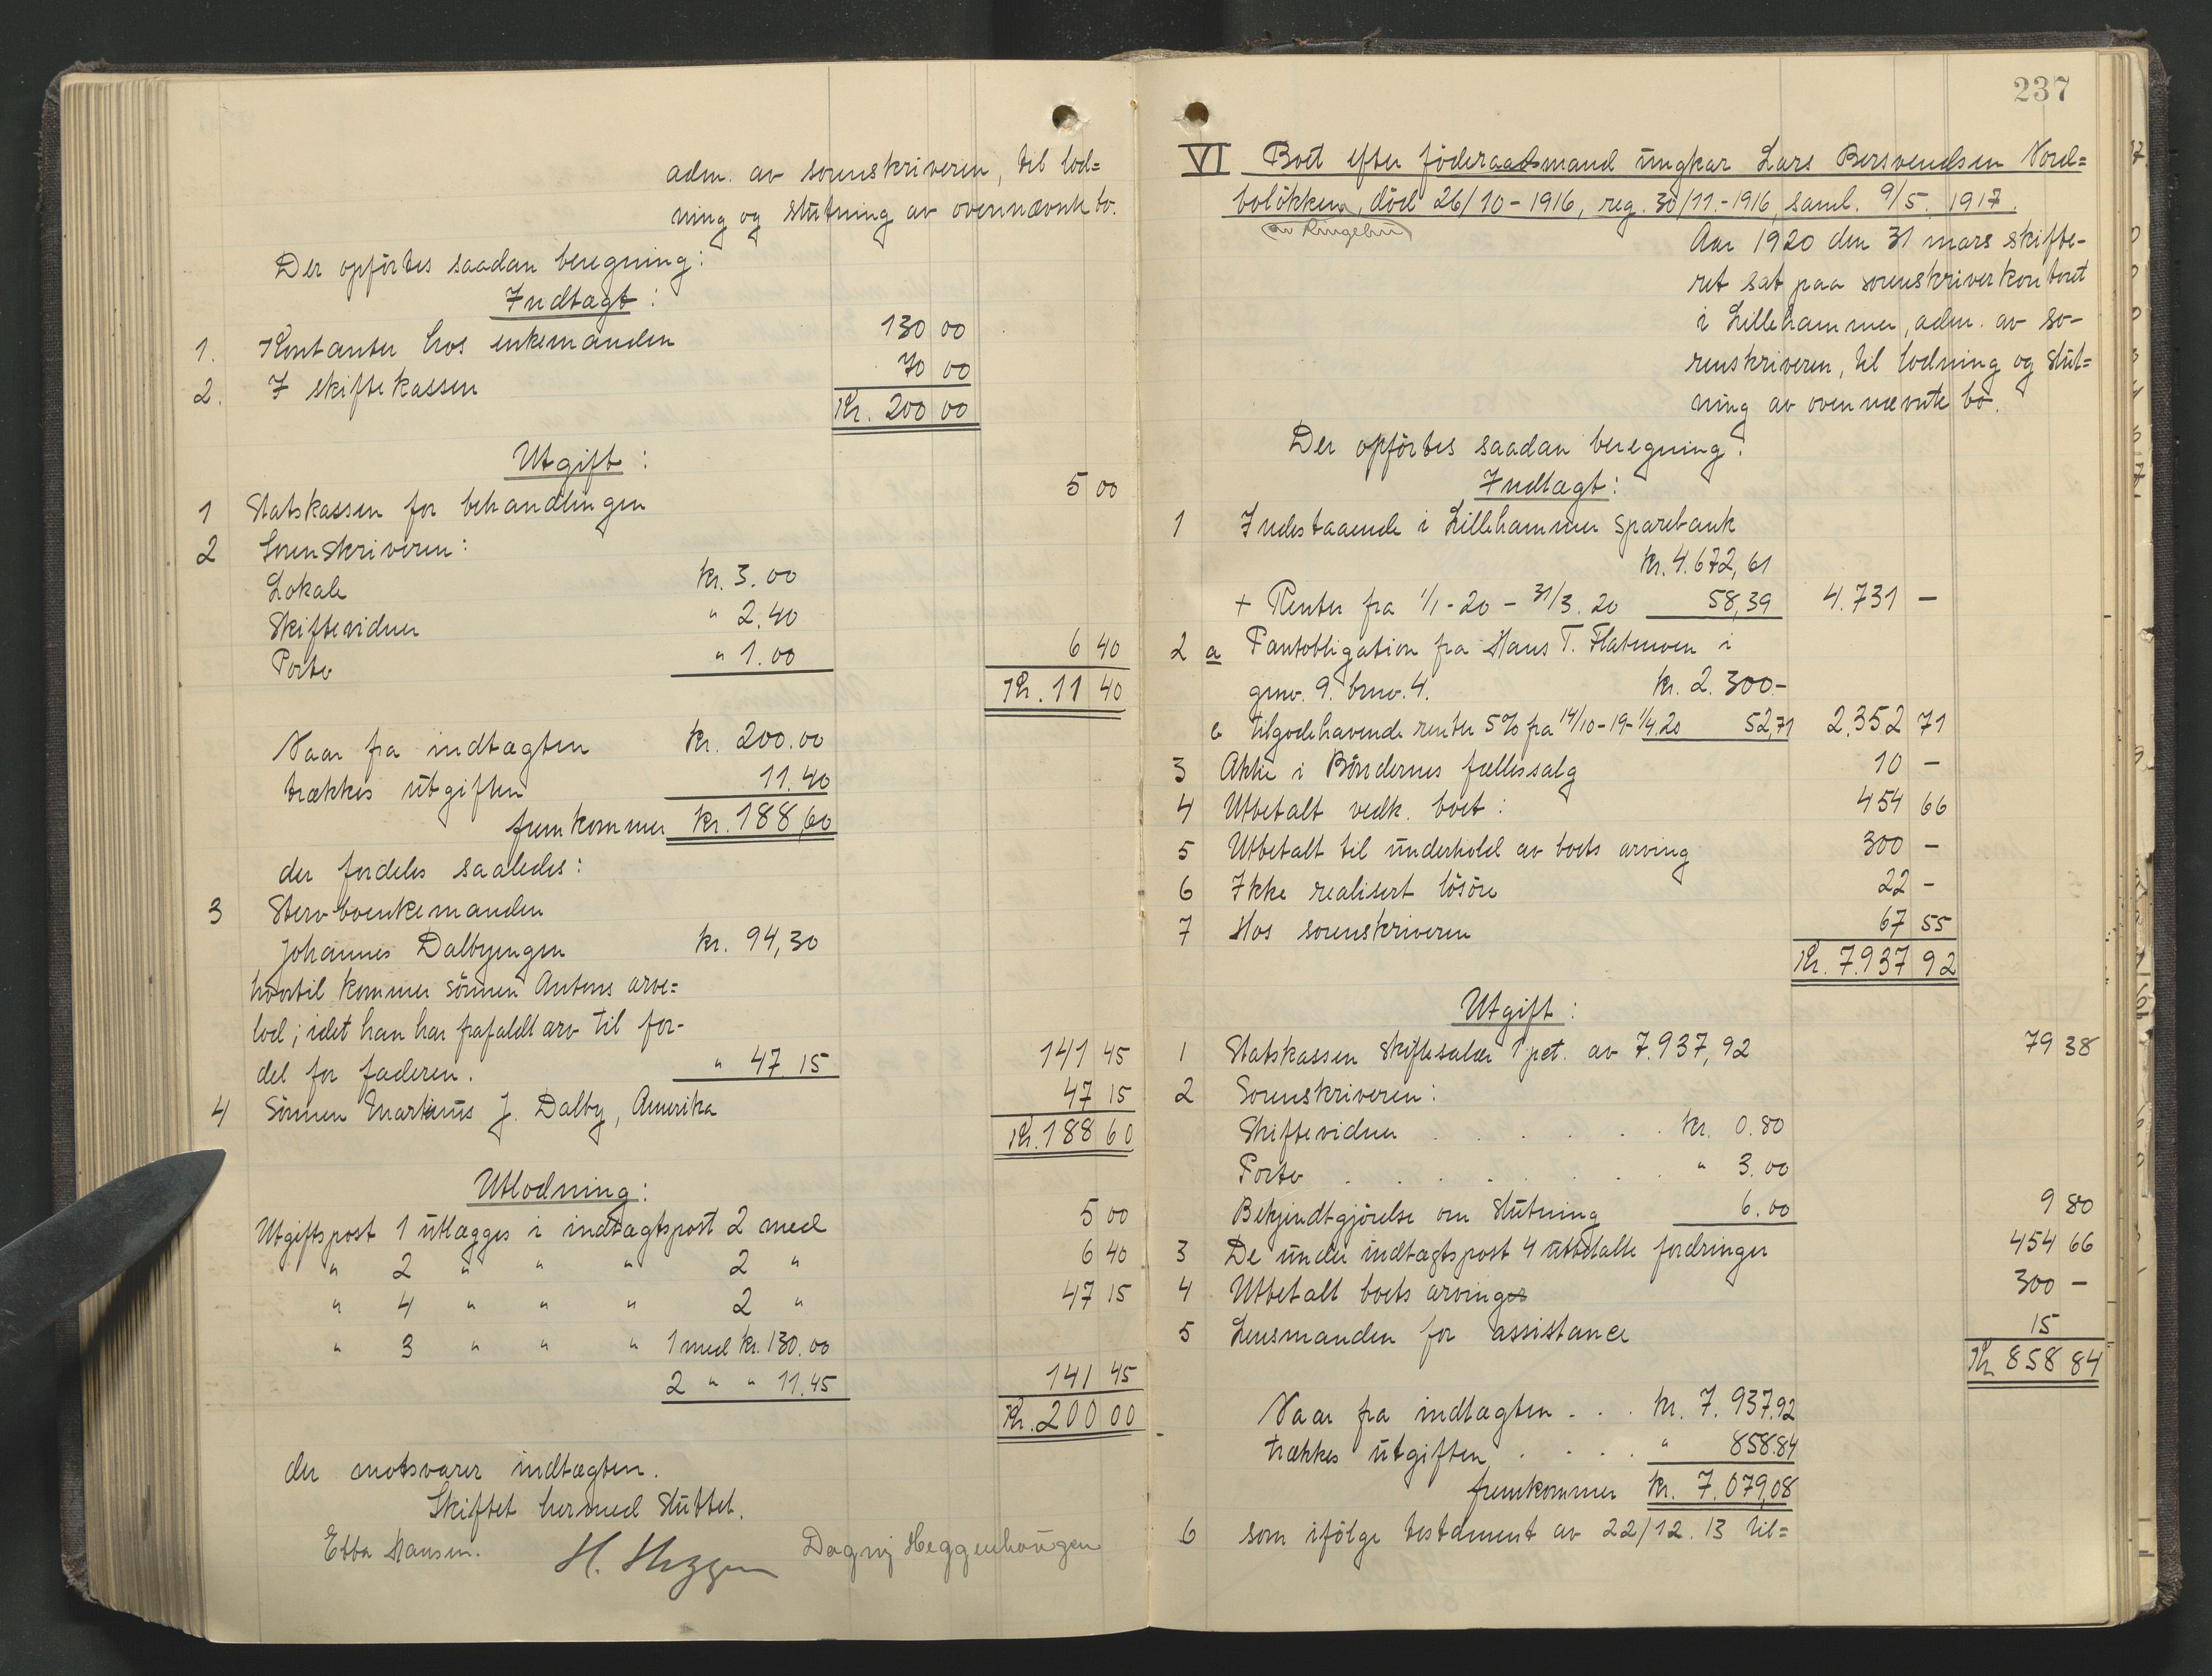 adm. av sorenskriveren, til lod=
ning og slutning av ovennævnte bo.
Der opførtes saadan beregning:
Indtægt:
1. Kontanter hos enkemanden 130 00
2. I skiftekassen 70 00
Kr. 200 00
Utgift:
1 Statskassen for behandlingen 5 00
2 Sorenskriveren:
Lokale kr. 3.00
Skiftevidner " 2.40
Porto " 1.00 6 40
Kr. 11 40
Naar fra indtægten kr. 200.00
trækkes utgiften 11.40
fremkommer kr. 188,60
der fordeles saaledes:
3 Stervboenkemanden
Johannes Dalbyengen kr. 94,30
hvortil kommer sönnen Antons arve=
lod; idet han har frafaldt arv til for-
del for faderen. " 47.15 141 45
4 Sönnen Martinus J. Dalby, Amerika 47 15
Kr. 188 60
Utlodning:
Utgiftspost 1 utlægges i indtægtspost 2 med 5 00
" 2 " " " 2 " 6 40
" 4 " " " 2 " 47 15
" 3 " " " 1 med kr. 130.00
2 " " 11.45 141 45
Kr. 200 00
der motsvarer indtægten.
Skiftet hermed sluttet.
Ebba Hansen. H. Heggen Dagny Heggenhougen
237
VI Boet efter föderaadsmand ungkar Lars Bersvendsen Nord=
bolökken, död 26/10-1916, reg. 30/11.-1916, saml. 9/5. 1917.
(av Ringebu)
Aar 1920 den 31 mars skifte-
ret sat paa sorenskriverkontoret
i Lillehammer, adm. av so-
renskriveren, til lodning og slut=
ning av ovennævnte bo.
Der opförtes saadan beregning:
Indtægt:
1 Indestaaende i Lillehammer Sparebank
kr. 4.672,61
+ Renter fra 1/1-20 - 31/3.20 58,39 4.731 -
2 a Pantobligation fra Hans T. Flatmoen i
gnv. 9. bnv. 4. kr. 2.300-
b Tilgodehavende renter 5% fra 14/10-19-1/4.20 52,71 2.352 71
3 Aktie i Böndernes fællessalg 10 -
4 Utbetalt vedk. boet: 454 66
5 Utbetalt til underhold av boets arving 300 -
6 Ikke realisert lösöre 22 -
7 Hos sorenskriveren 67 55
Kr. 7.937 92
Utgift:
1 Statskassen skiftesalær 1 pct. av 7.937,92 79 38
2 Sorenskriveren:
Skiftevidner . . . . . . kr. 0.80
Porto . . . . . . . " 3.00
Bekjendtgjörelse om slutning 6.00 9 80
3 De under indtægtspost 4 utbetalte fordringer 454 66
4 Utbetalt boets arving 300 -
5 Lensmanden for assistance 15
Kr 858 84
Naar fra indtægten . . . kr. 7.937.92
trækkes utgiften . . . . " 858.84
fremkommer kr. 7.079,08
6 som ifölge testament av 22/12.13 til=